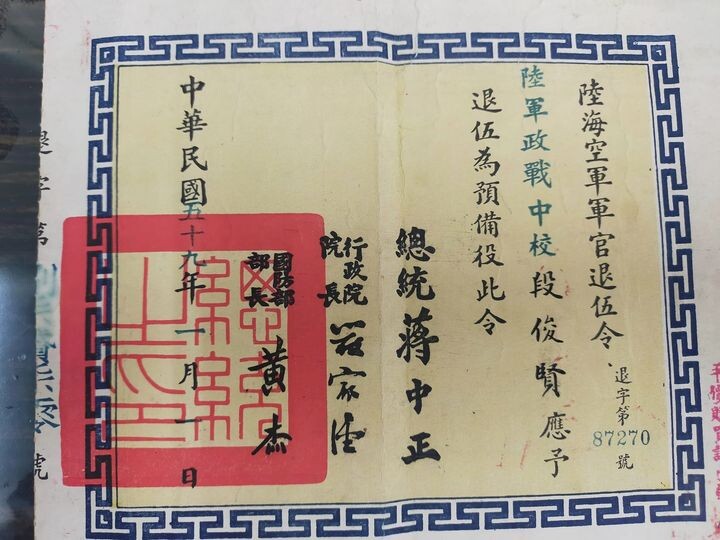 陸海空軍軍官退伍令
退字第
87270
號
陸軍政戰中校段俊賢應予
退伍為預備役此令
總統蔣中正
行政院
院長
國防部
部長
黃杰
中華民國五十九年一月一日
總統
之印
退字第
號